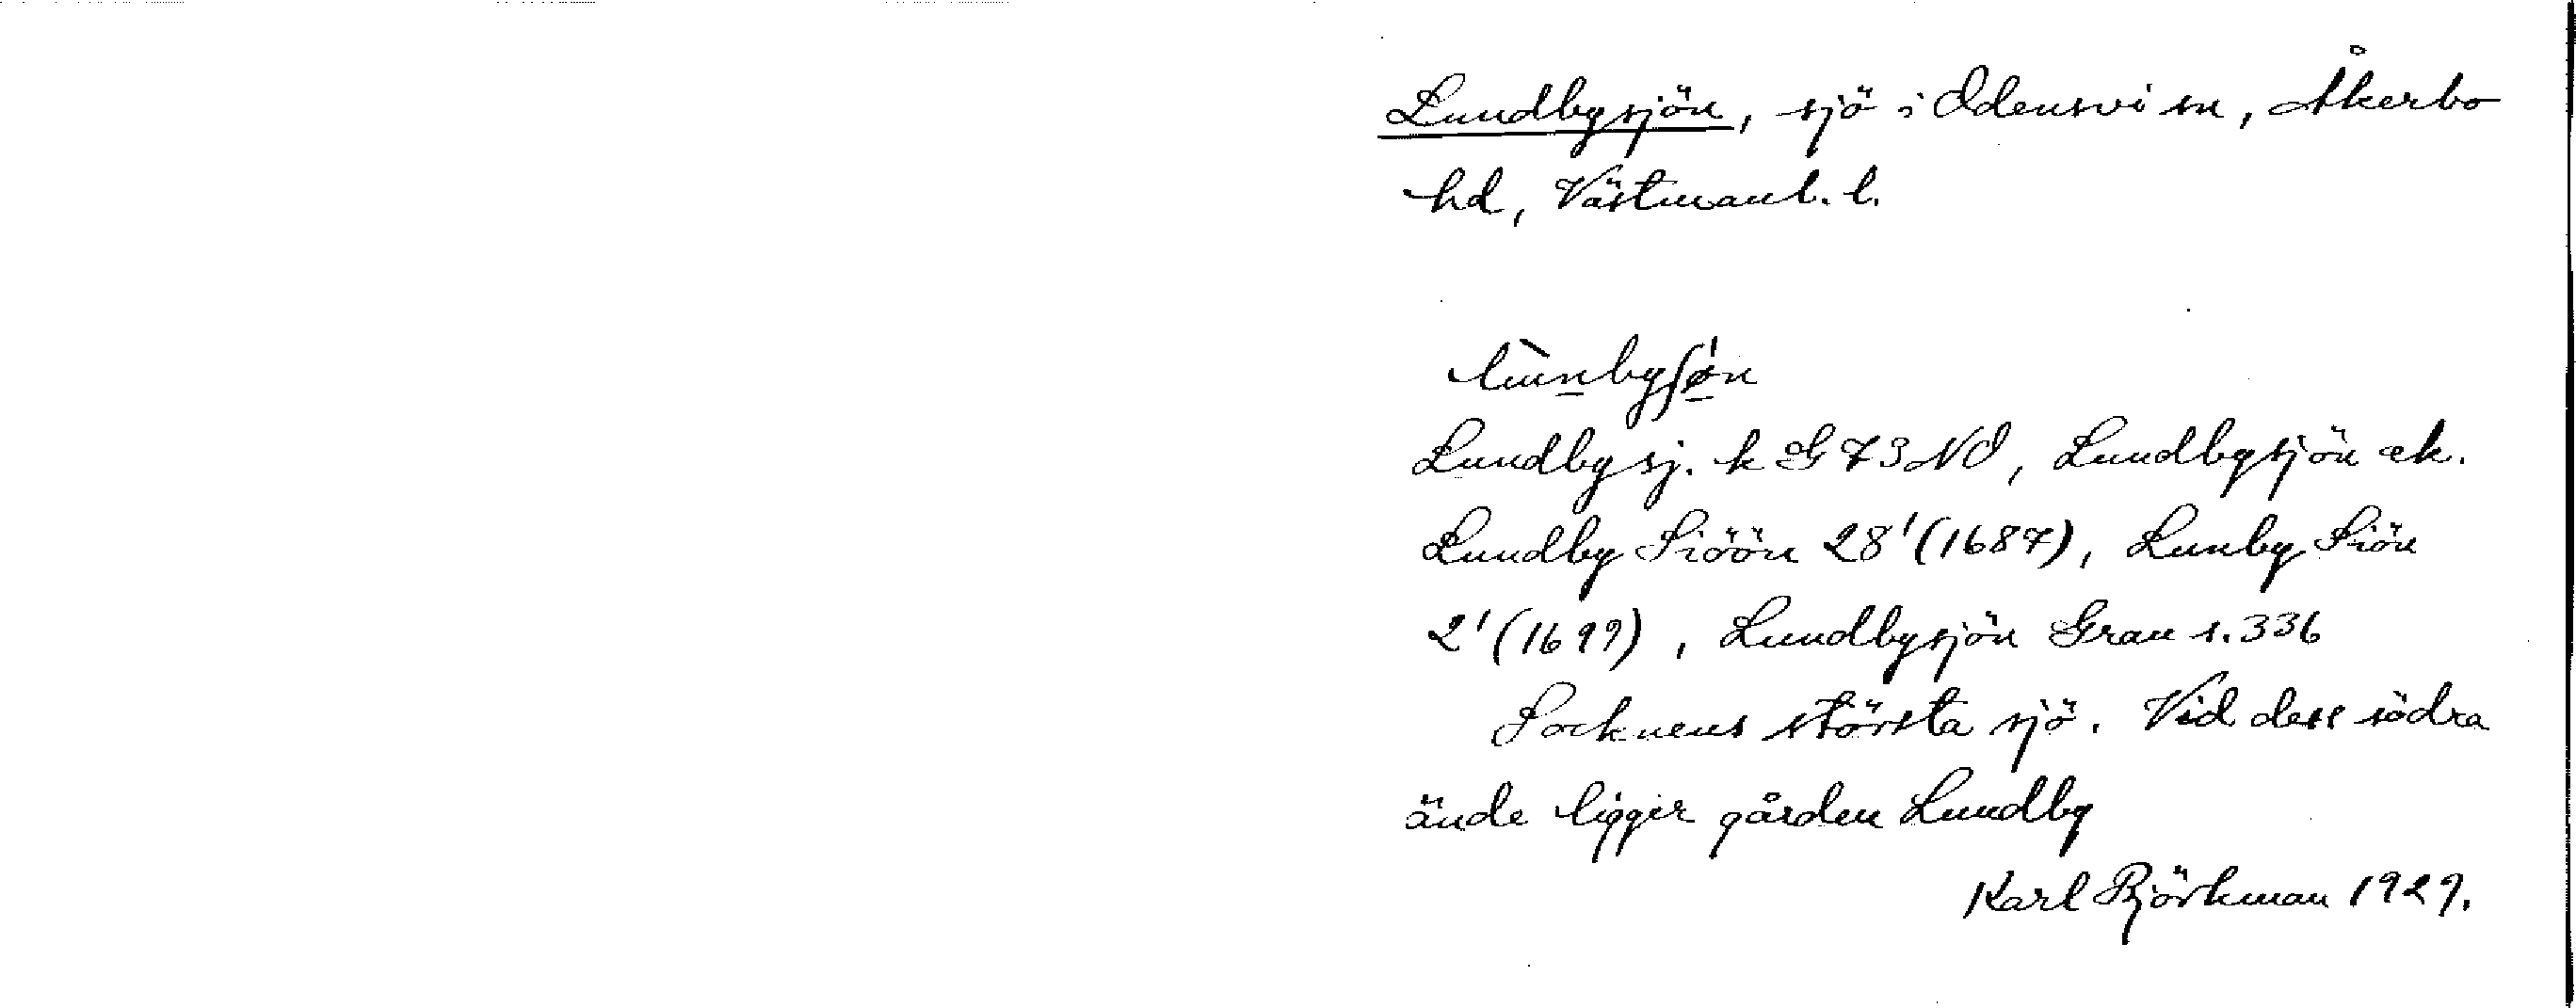 Lundbysjön, sjö i Odensvi sn, Åkerbo
hd, Västmanl. l.
lùnbyʃǿn
Lundby sj. k G 73 NO, Lundbysjön ek.
Lundby Siöön 28¹(1687), Lunby Siön
2¹(1699), Lundbysjön Grau s. 336
Socknens största sjö. Vid dess södra
ände ligger gården Lundby
Karl Björkman 1929.